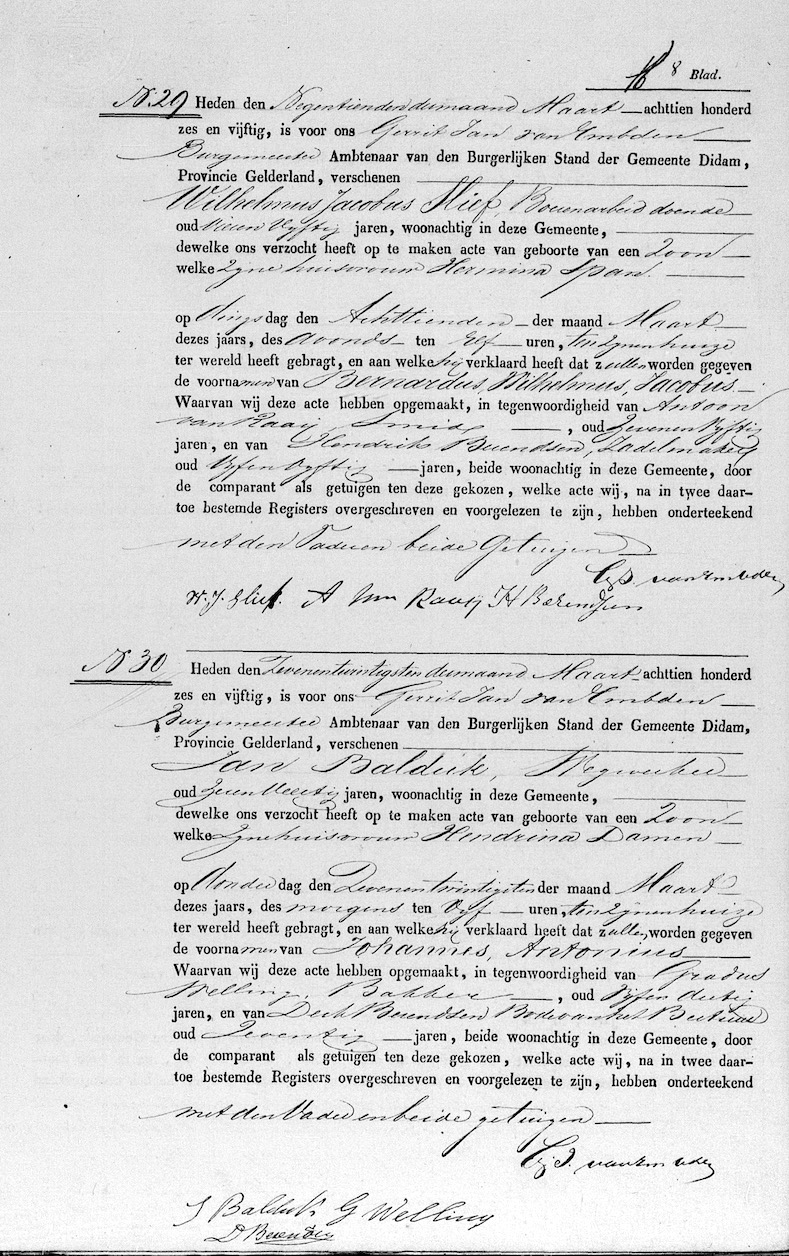 8 Blad.
N. 29 Heden den Negentienden der maand Maart achttien honderd
zes en vijftig, is voor ons Gerrit Jan van Embden
Burgemeester Ambtenaar van den Burgerlijken Stand der Gemeente Didam,
Provincie Gelderland, verschenen
Wilhelmus Jacobus Slief, Bouenarbeid doende
oud Vyftig jaren, woonachtig in deze Gemeente,
dewelke ons verzocht heeft op te maken acte van geboorte van een Zoon
welke Zyne huisvrouw Hermina Span.
op Dingsdag den Achttienden der maand Maart
dezes jaars, des avonds ten Elf uren, ten Zynen huize
ter wereld heeft gebragt, en aan welke hij verklaard heeft dat zullen worden gegeven
de voornamen van Bernardus, Wilhelmus, Jacobus.
Waarvan wij deze acte hebben opgemaakt, in tegenwoordigheid van Antoon
van Raaij, Smid, oud Zeven en Vyftig
jaren, en van Hendrik Berendsen, Zadelmaker
oud Vyf en Vyftig jaren, beide woonachtig in deze Gemeente, door
de comparant als getuigen ten deze gekozen, welke acte wij, na in twee daar-
toe bestemde Registers overgeschreven en voorgelezen te zijn, hebben onderteekend
met den Vader en beide Getuigen
GJ. van Embden
W. J. Slief. A van Raaij H Berendsen
N 30 Heden den Zevenentwintigsten der maand Maart achttien honderd
zes en vijftig, is voor ons Gerrit Jan van Embden
Burgemeester Ambtenaar van den Burgerlijken Stand der Gemeente Didam,
Provincie Gelderland, verschenen
Jan Balduk, Wegwerker
oud Zeven Veertig jaren, woonachtig in deze Gemeente,
dewelke ons verzocht heeft op te maken acte van geboorte van een Zoon
welke Zyne huisvrouw Hendrina Damen
op Donderdag den Zevenentwintigsten der maand Maart
dezes jaars, des morgens ten Vyf uren, ten Zynen huize
ter wereld heeft gebragt, en aan welke hij verklaard heeft dat zullen worden gegeven
de voornamen van Johannes, Antonius
Waarvan wij deze acte hebben opgemaakt, in tegenwoordigheid van Gradus
Welling, Bakker, oud Vyf en dertig
jaren, en van Derk Berendsen Bode van het Bestuur
oud Zeventig jaren, beide woonachtig in deze Gemeente, door
de comparant als getuigen ten deze gekozen, welke acte wij, na in twee daar-
toe bestemde Registers overgeschreven en voorgelezen te zijn, hebben onderteekend
met den Vader en beide getuigen
GJ. van Embden
J Balduk G Welling
D Berendsen